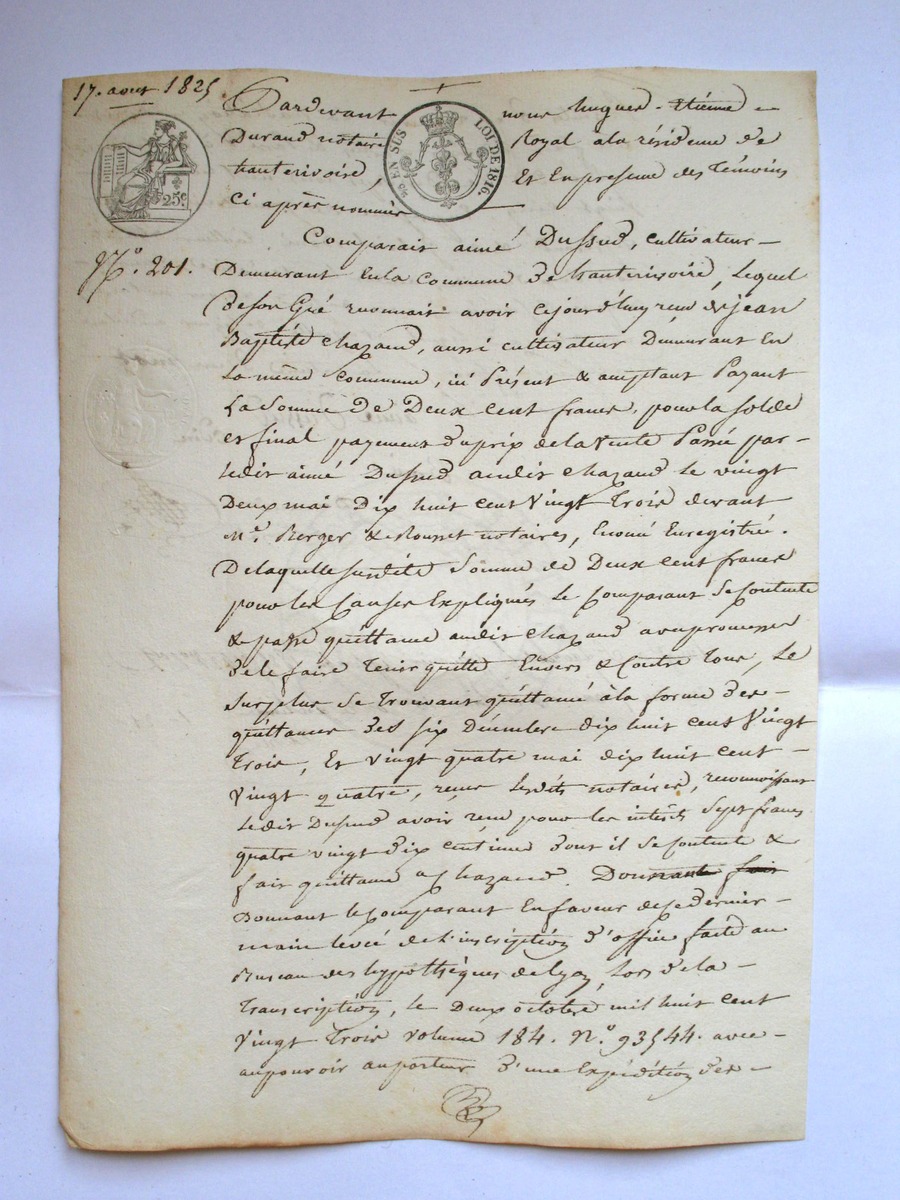 17. aout 1825
Pardevant nous hugues-étienne
Durand notaire Royal ala résidence de
hauterivoire, Et En presence des Témoins
Ci après nommés
EN SUS LOI DE 1816.
25c
N.º 201.
Comparait aimé Dussud, cultivateur
Demeurant En la Commune de hauterivoire, lequel
de son Gré reconnait avoir cejourd'huy recu de jean
Baptiste chazaud, aussi cultivateur Demeurant En
La même Commune, ici Présent & acceptant Payant
La Somme de Deux cent francs, pour la solde
et final payement du prix de la Vente Passée par
ledit aimé Dussud audit chazaud le vingt
Deux mai dix huit cent Vingt Trois devant
M.e Berger & Rousset notaires, Enregistrée.
De laquelle susdite Somme de Deux cent francs
pour les Causes Expliqués le Comparant Se Contente
& passe quittance audit chazaud avec promesse
de le faire Tenir quitte Envers & Contre Tous, Le
surplus Se Trouvant quittancé à la forme des
quittances des six Décembre dix huit cent Vingt
Trois, Et Vingt quatre mai dix huit cent
Vingt quatre, reçues lesdits notaires, reconnoissant
ledit Dussud avoir recu pour les intérêts Sept francs
quatre vingt dix centimes dont il se Contente &
fait quittance a Chazaud. Donnant fait
Donnant le Comparant En faveur de ce dernier
main levée de l'inscription d'office faite au
Bureau des hypothèques de Lyon, lors de la
Transcription, le deux octobre mil huit cent
Vingt Trois volume 184. N.º 93544. avec
au pouvoir au porteur d'une Expédition des